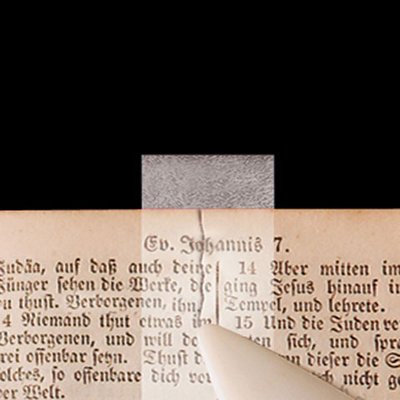 Ev. Johannis 7.
Judäa, auf daß auch deine
Jünger sehen die Werke, die
thust. Verborgenen, ihn
4 Niemand thut etwas
Verborgenen, und will
frei offenbar seyn. Thust
solches, so offenbare dich vor
der Welt.
14 Aber mitten im
ging Jesus hinauf in
Tempel, und lehrete.
15 Und die Juden ver
sich, und spra
dieser die
nicht